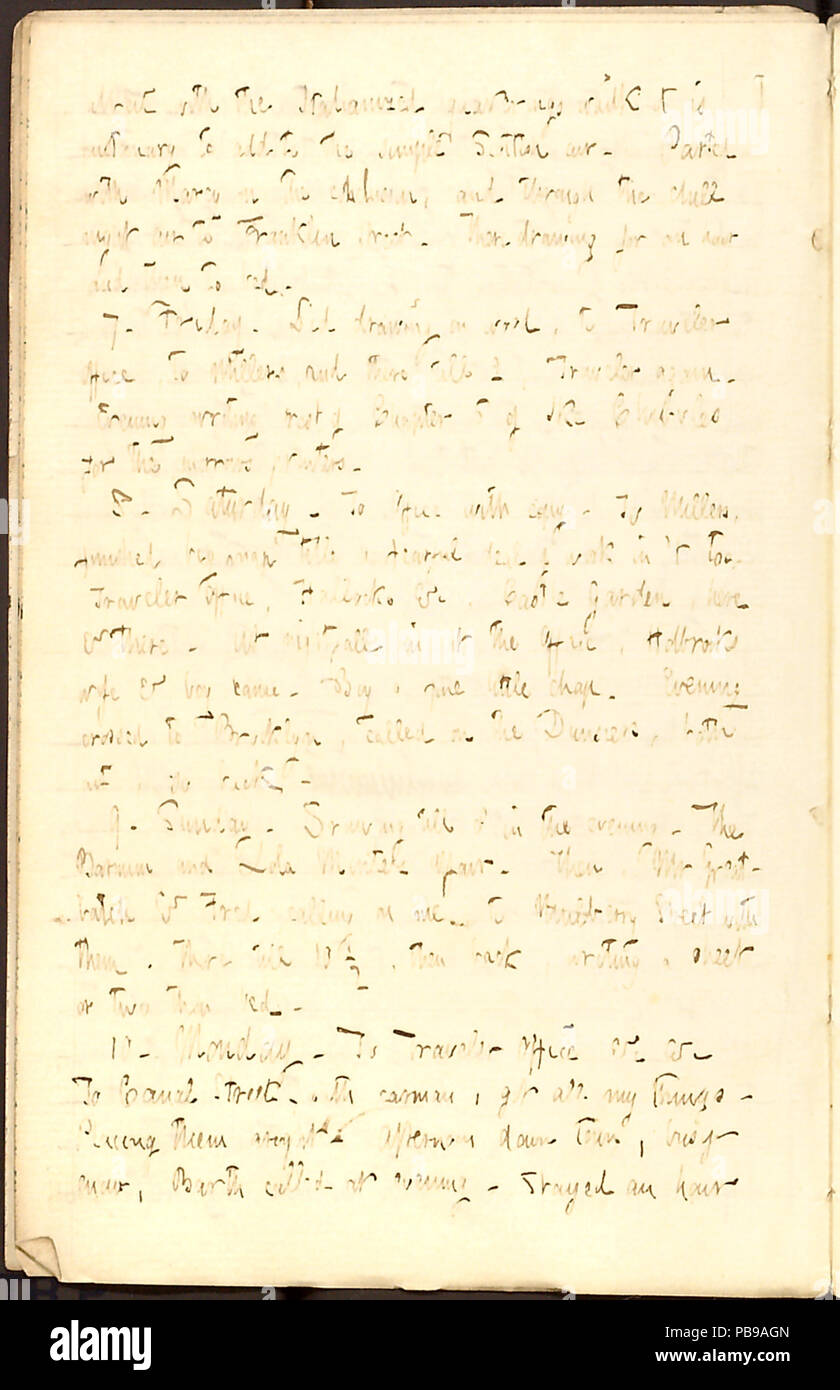 with the Italianized quaverings which it is
customary to add to the simple Scottish air. Parted
with Marcy in the and through the chill
night air to Franklin Street. Then drawing for an hour
and then to bed.
7. Friday. Did drawing on wood, to Traveler
Office, to Millers, and there till 2, Traveler again.
Evening writing rest of Chapter 5 of
for the morrow's printers.
8. Saturday. To Office with copy. To Millers,
finished title, a fearful deal of work in't too.
Traveler Office, Hallocks &c, Castle Garden, here
& there. At nightfall in at the Office, Holbrooks
wife & boy came. Boy a fine little chap. Evening
crossed to Brooklyn, called on the Dunsiers, both

9. Sunday. Drawing till in the evening. The
Barnum and Lola Montes affair. Then, Mr Great-
batch & Fred calling on me, to Mulberry Street with
them. There till 10 1/2, then back, writing a sheet
or two then bed.
10. Monday. To Traveler Office &c &c
To Canal Street with carman, got all my things.
Placing them aright. Afternoon down town, busy
enow, Barth called at evening. Stayed an hour
alamy
Image ID: PB9AGN
www.alamy.com